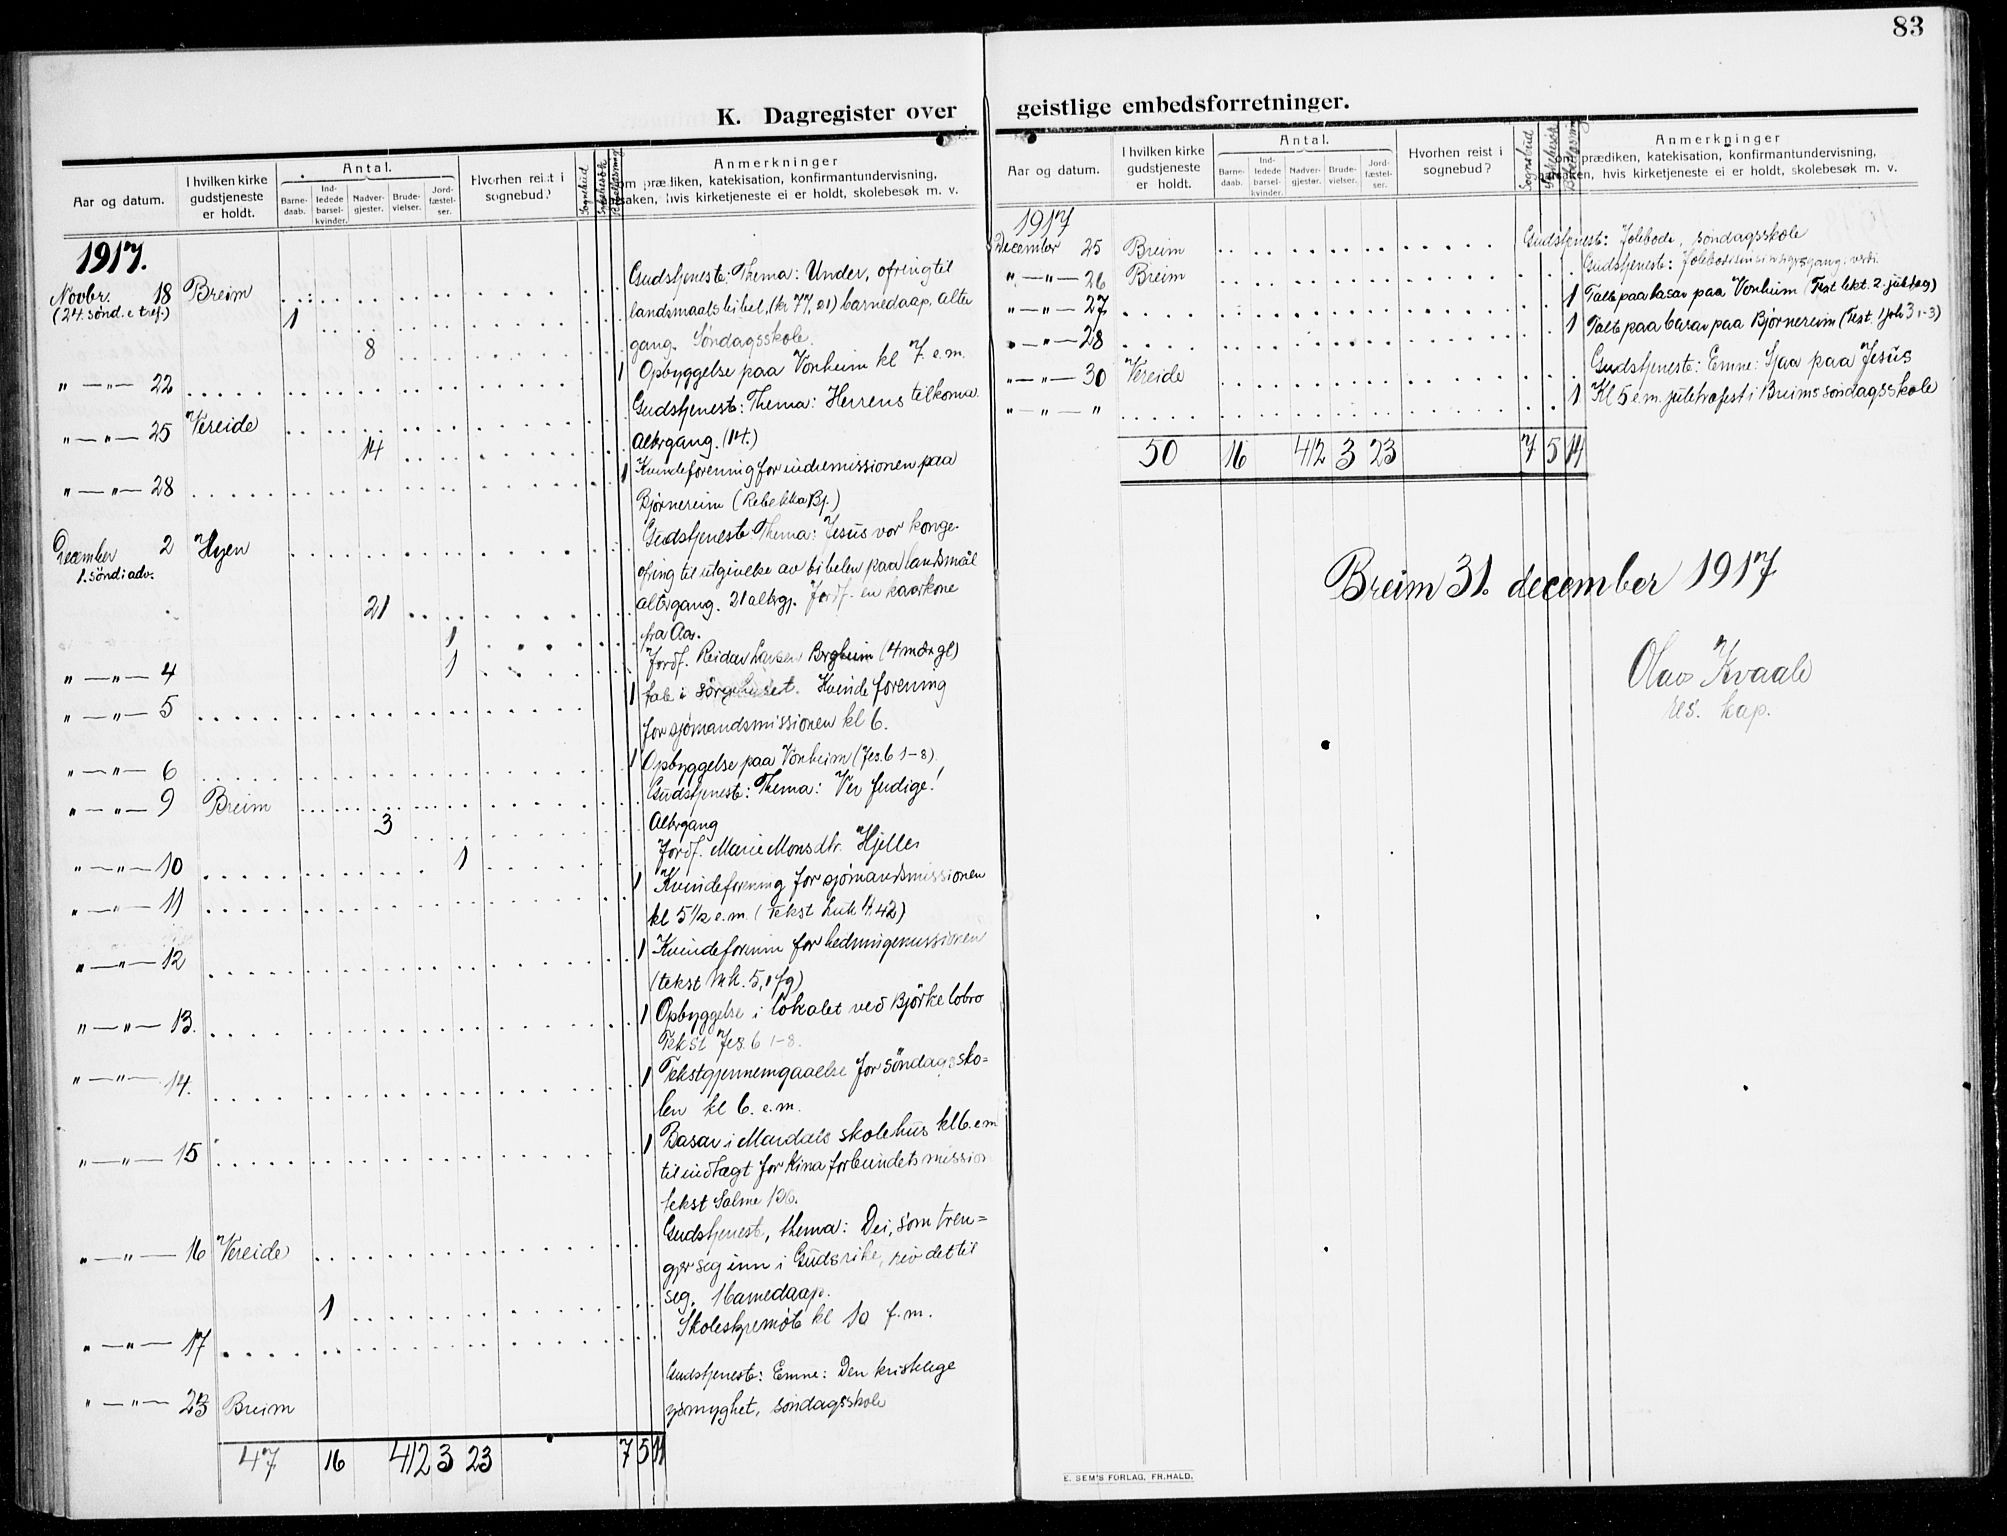 83
K. Dagregister over geistlige embedsforretninger.
Aar og datum.
I hvilken kirke gudstjeneste er holdt.
Antal.
Barne-daab.
Ind-ledede barsel-kvinder.
Nadver-gjester.
Brude-vielser.
Jord-fæstel-ser.
Hvorhen reist i sognebud?
Sognebud
Sykebesøk
Bibellæsning
Anmerkninger
om prædiken, katekisation, konfirmantundervisning,
aarsaken, hvis kirketjeneste ei er holdt, skolebesøk m. v.
1917.
Novbr. 18 Breim Gudstjeneste: Thema: Under, ofring til
(24. sønd. e tref.) 1 landsmaalsbibel. (kr 77,21) barnedaap. Alter
8 gang. Søndagsskole.
" — " — 22 1 Opbyggelse paa Vonheim kl 7 e.m.
" — " — 25 Vereide Gudstjeneste: Thema: Herrens tilkome
14 Altergang. (14.)
" — " — 28 1 Kvindeforening for indremissionen paa
Bjørnereim (Rebekka Bj.)
December 2 Hyen Gudstjeneste Thema: Jesus vor konge.
1. sønd i adv. ofring til utgivelse av bibelen paa landsmål
21 altergang. 21 altergj. Jordf. en kaarkone
1 fra Aa.
" — " — 4 1 Jordf. Reidar Larsen Bergheim (4 mdr gl)
" — " — 5 1 tale i sørgehuset. Kvindeforening
for sjømandsmissionen kl 6.
" — " — 6 1 Opbyggelse paa Vonheim (Jes. 6 1-8)
" — " — 9 Breim Gudstjeneste: Thema: Ver ferdige!
3 Altergang
" — " — 10 1 Jordf. Marie Monsdtr. Hjelle
" — " — 11 1 Kvindeforening for sjømandsmissionen
kl 5 1/2 e.m. (tekst Luk 4.42)
" — " — 12 1 Kvindeforenin for hedningemissionen
(tekst Mk. 5,1 fg)
" — " — 13. 1 Opbyggelse i lokalet ved Bjørkelobro
Tekst Jes. 6 1-8.
" — " — 14. 1 Tekstgjennemgaaelse for søndagssko=
len kl 6. e.m.
" — " — 15 1 Basar i Mardals skolehus kl 6. em
til indtægt for Kinaforbundets mission
tekst Salme 126.
" — " — 16 Vereide Gudstjeneste, thema: Dei, som tren=
gjer seg inn i Guds rike, riv det til
1 seg. 1 barnedaap.
" — " — 17 Skolestyremøte kl 10 f.m.
Gudstjeneste: Emne: Den kristelege
" — " — 23 Breim audmyghet, søndagsskole
47 16 412 3 23 7 5 11
Aar og datum.
I hvilken kirke gudstjeneste er holdt.
Antal.
Barne-daab.
Ind-ledede barsel-kvinder.
Nadver-gjester.
Brude-vielser.
Jord-fæstel-ser.
Hvorhen reist i sognebud?
Sognebud
Sykebesøk
Bibellæsning
Anmerkninger
om prædiken, katekisation, konfirmantundervisning,
aarsaken, hvis kirketjeneste ei er holdt, skolebesøk m. v.
1917
December 25 Breim Gudstjeneste: Jolebode, søndagsskole
" — " — 26 Breim Gudstjeneste:
" — " — 27 1 Tale paa basar paa Vonheim (Text lekt. 2. juledag)
" — " — 28 1 Tale paa basar paa Bjørnereim (Text. 1 Joh 3 1-3)
" — " — 30 Vereide Gudstjeneste: Emne: Sjaa paa Jesus
" — " — " 1 Kl 5 e.m. juletræfest i Breims søndagsskole
50 16 412 3 23 7 5 14
Breim 31. december 1917
Olav Kvaale
res. kap.
E. SEM'S FORLAG, FR.HALD.